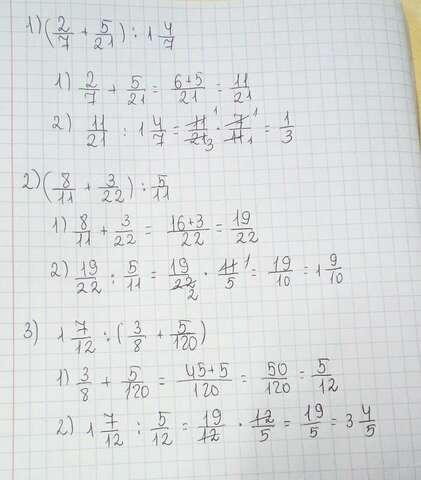 1) (2/7 + 5/21) : 1 4/7
1) 2/7 + 5/21 = 6+5/21 = 11/21
2) 11/21 : 1 4/7 = 11/21 3 1 · 7/11 1 1 = 1/3
2) (8/11 + 3/22) : 5/11
1) 8/11 + 3/22 = 16+3/22 = 19/22
2) 19/22 : 5/11 = 19/22 2 · 11/5 1 = 19/10 = 1 9/10
3) 1 7/12 : (3/8 + 5/120)
1) 3/8 + 5/120 = 45+5/120 = 50/120 = 5/12
2) 1 7/12 : 5/12 = 19/12 · 12/5 = 19/5 = 3 4/5